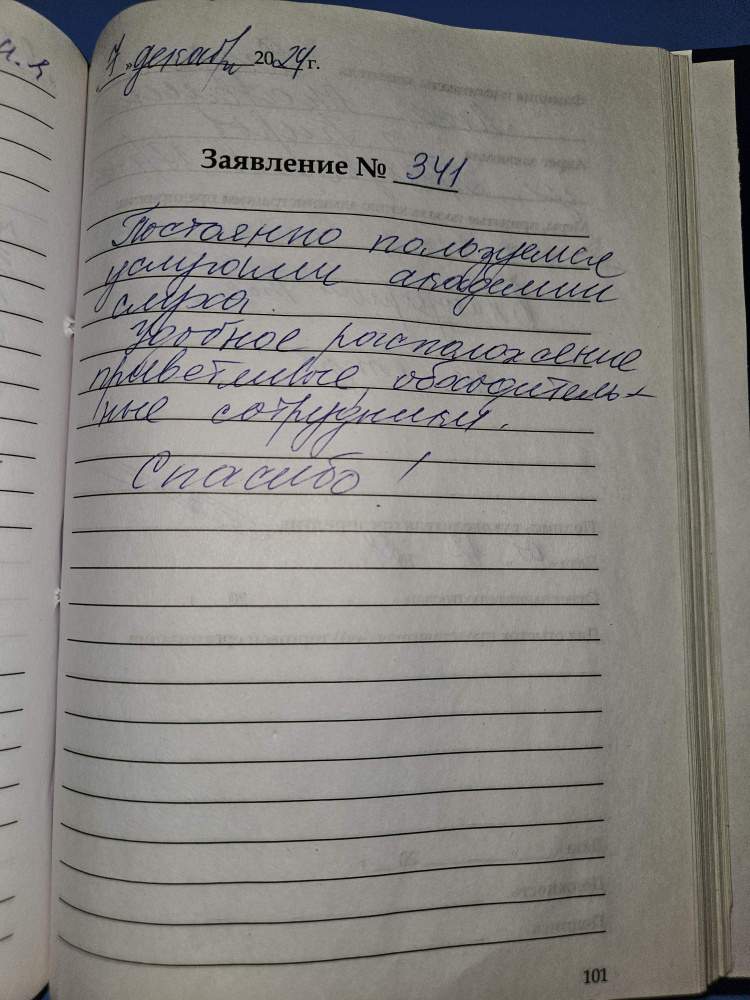 7 декабря 2024 г.
Заявление № 341
Постоянно пользуемся
услугами академии
слуха.
Удобное расположение
приветливые, обходитель-
ные сотрудники.
Спасибо!
101